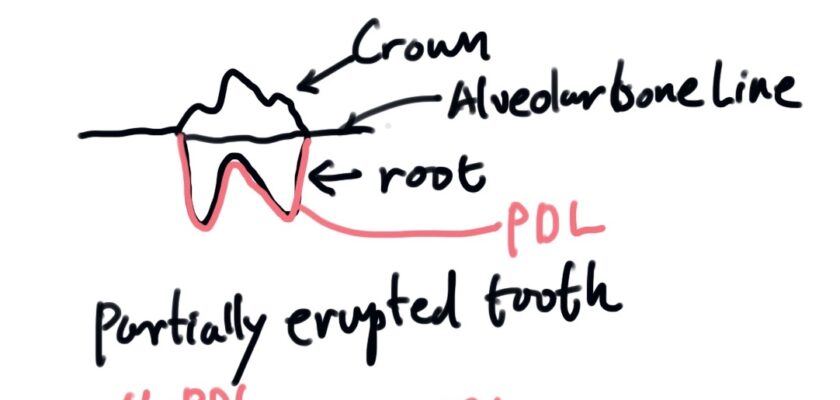 Crown
Alveolar bone Line
root
PDL
Partially erupted tooth